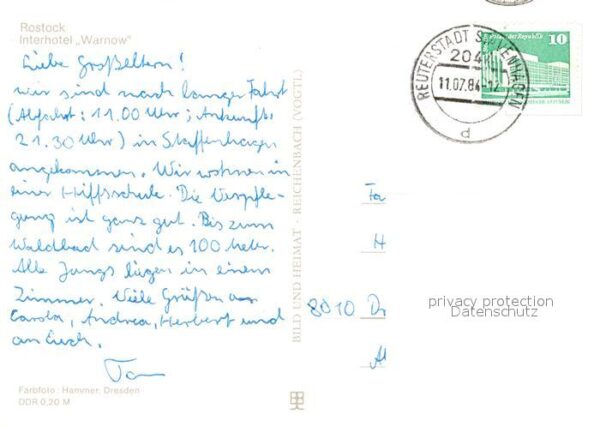 Rostock
Interhotel „Warnow"
Liebe Großeltern!
wir sind nach langer Fahrt
(Abfahrt: 11.00 Uhr; Ankunft:
21.30 Uhr) in Staffenhagen
angekommen. Wir wohnen in
einer Hilfsschule. Die Verpfle-
gung ist ganz gut. Bis zum
Waldbad sind es 100 meter.
Alle Jungs liegen in einem
Zimmer. Viele Grüßen an
Carola, Andrea, Herbert und
an Euch.
Farbfoto: Hammer, Dresden
DDR 0,20 M
BILD UND HEIMAT · REICHENBACH (VOGTL)
REUTERSTADT STAVENHAGEN
204
11.07.84-12
d
10
Fa
H
8010 Dr
privacy protection
Datenschutz